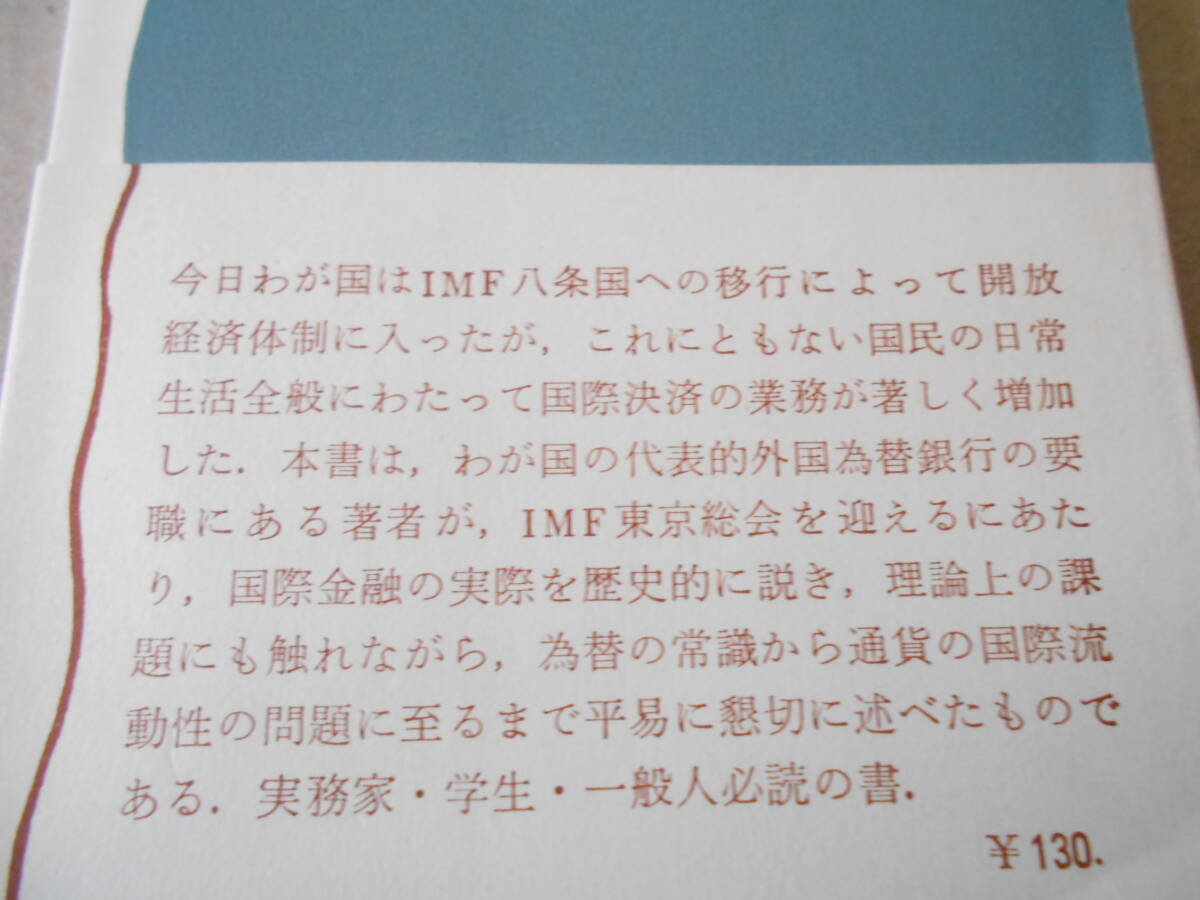 今日わが国はIMF八条国への移行によって開放
経済体制に入ったが，これにともない国民の日常
生活全般にわたって国際決済の業務が著しく増加
した．本書は，わが国の代表的外国為替銀行の要
職にある著者が，IMF東京総会を迎えるにあた
り，国際金融の実際を歴史的に説き，理論上の課
題にも触れながら，為替の常識から通貨の国際流
動性の問題に至るまで平易に懇切に述べたもので
ある．実務家・学生・一般人必読の書．
￥130.